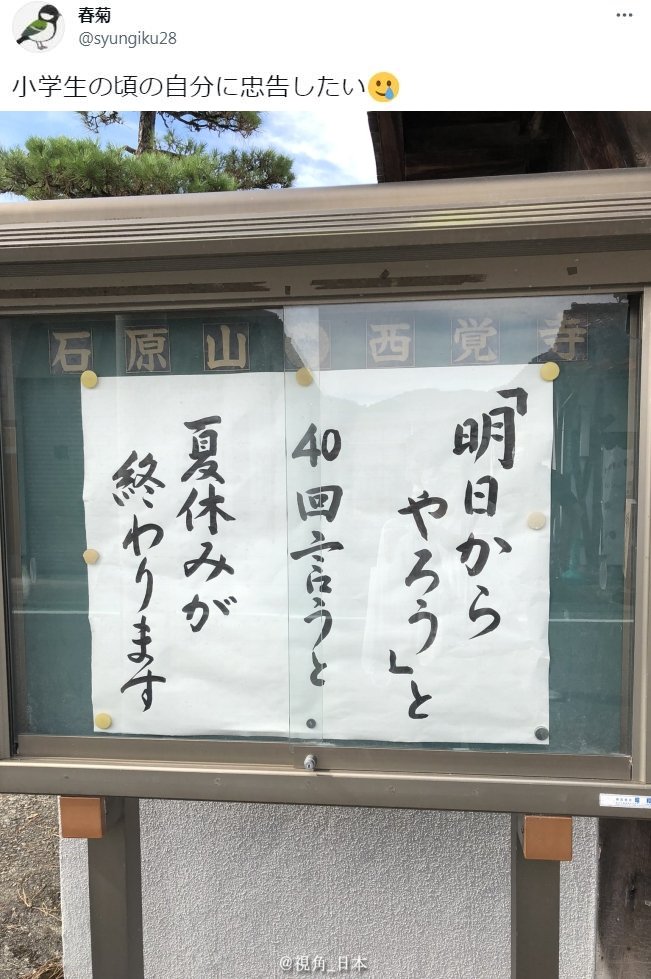 春菊
@syungiku28
小学生の頃の自分に忠告したい🥲
石原山 西覚寺
「明日から
やろう」と
40回言うと
夏休みが
終わります
@視角_日本